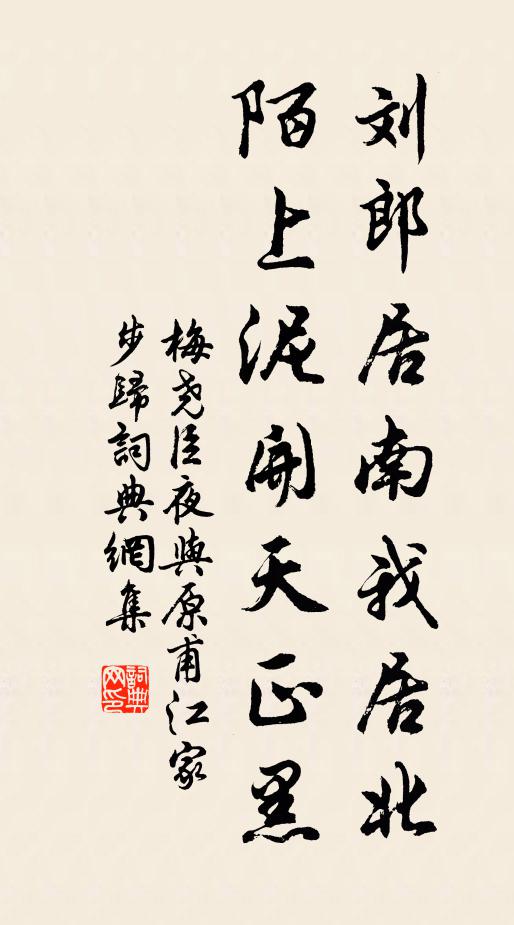 刘郎居南我居北
陌上泥開天正黑
梅尧臣夜與原甫江家
步歸詞典網集
詞典
网印